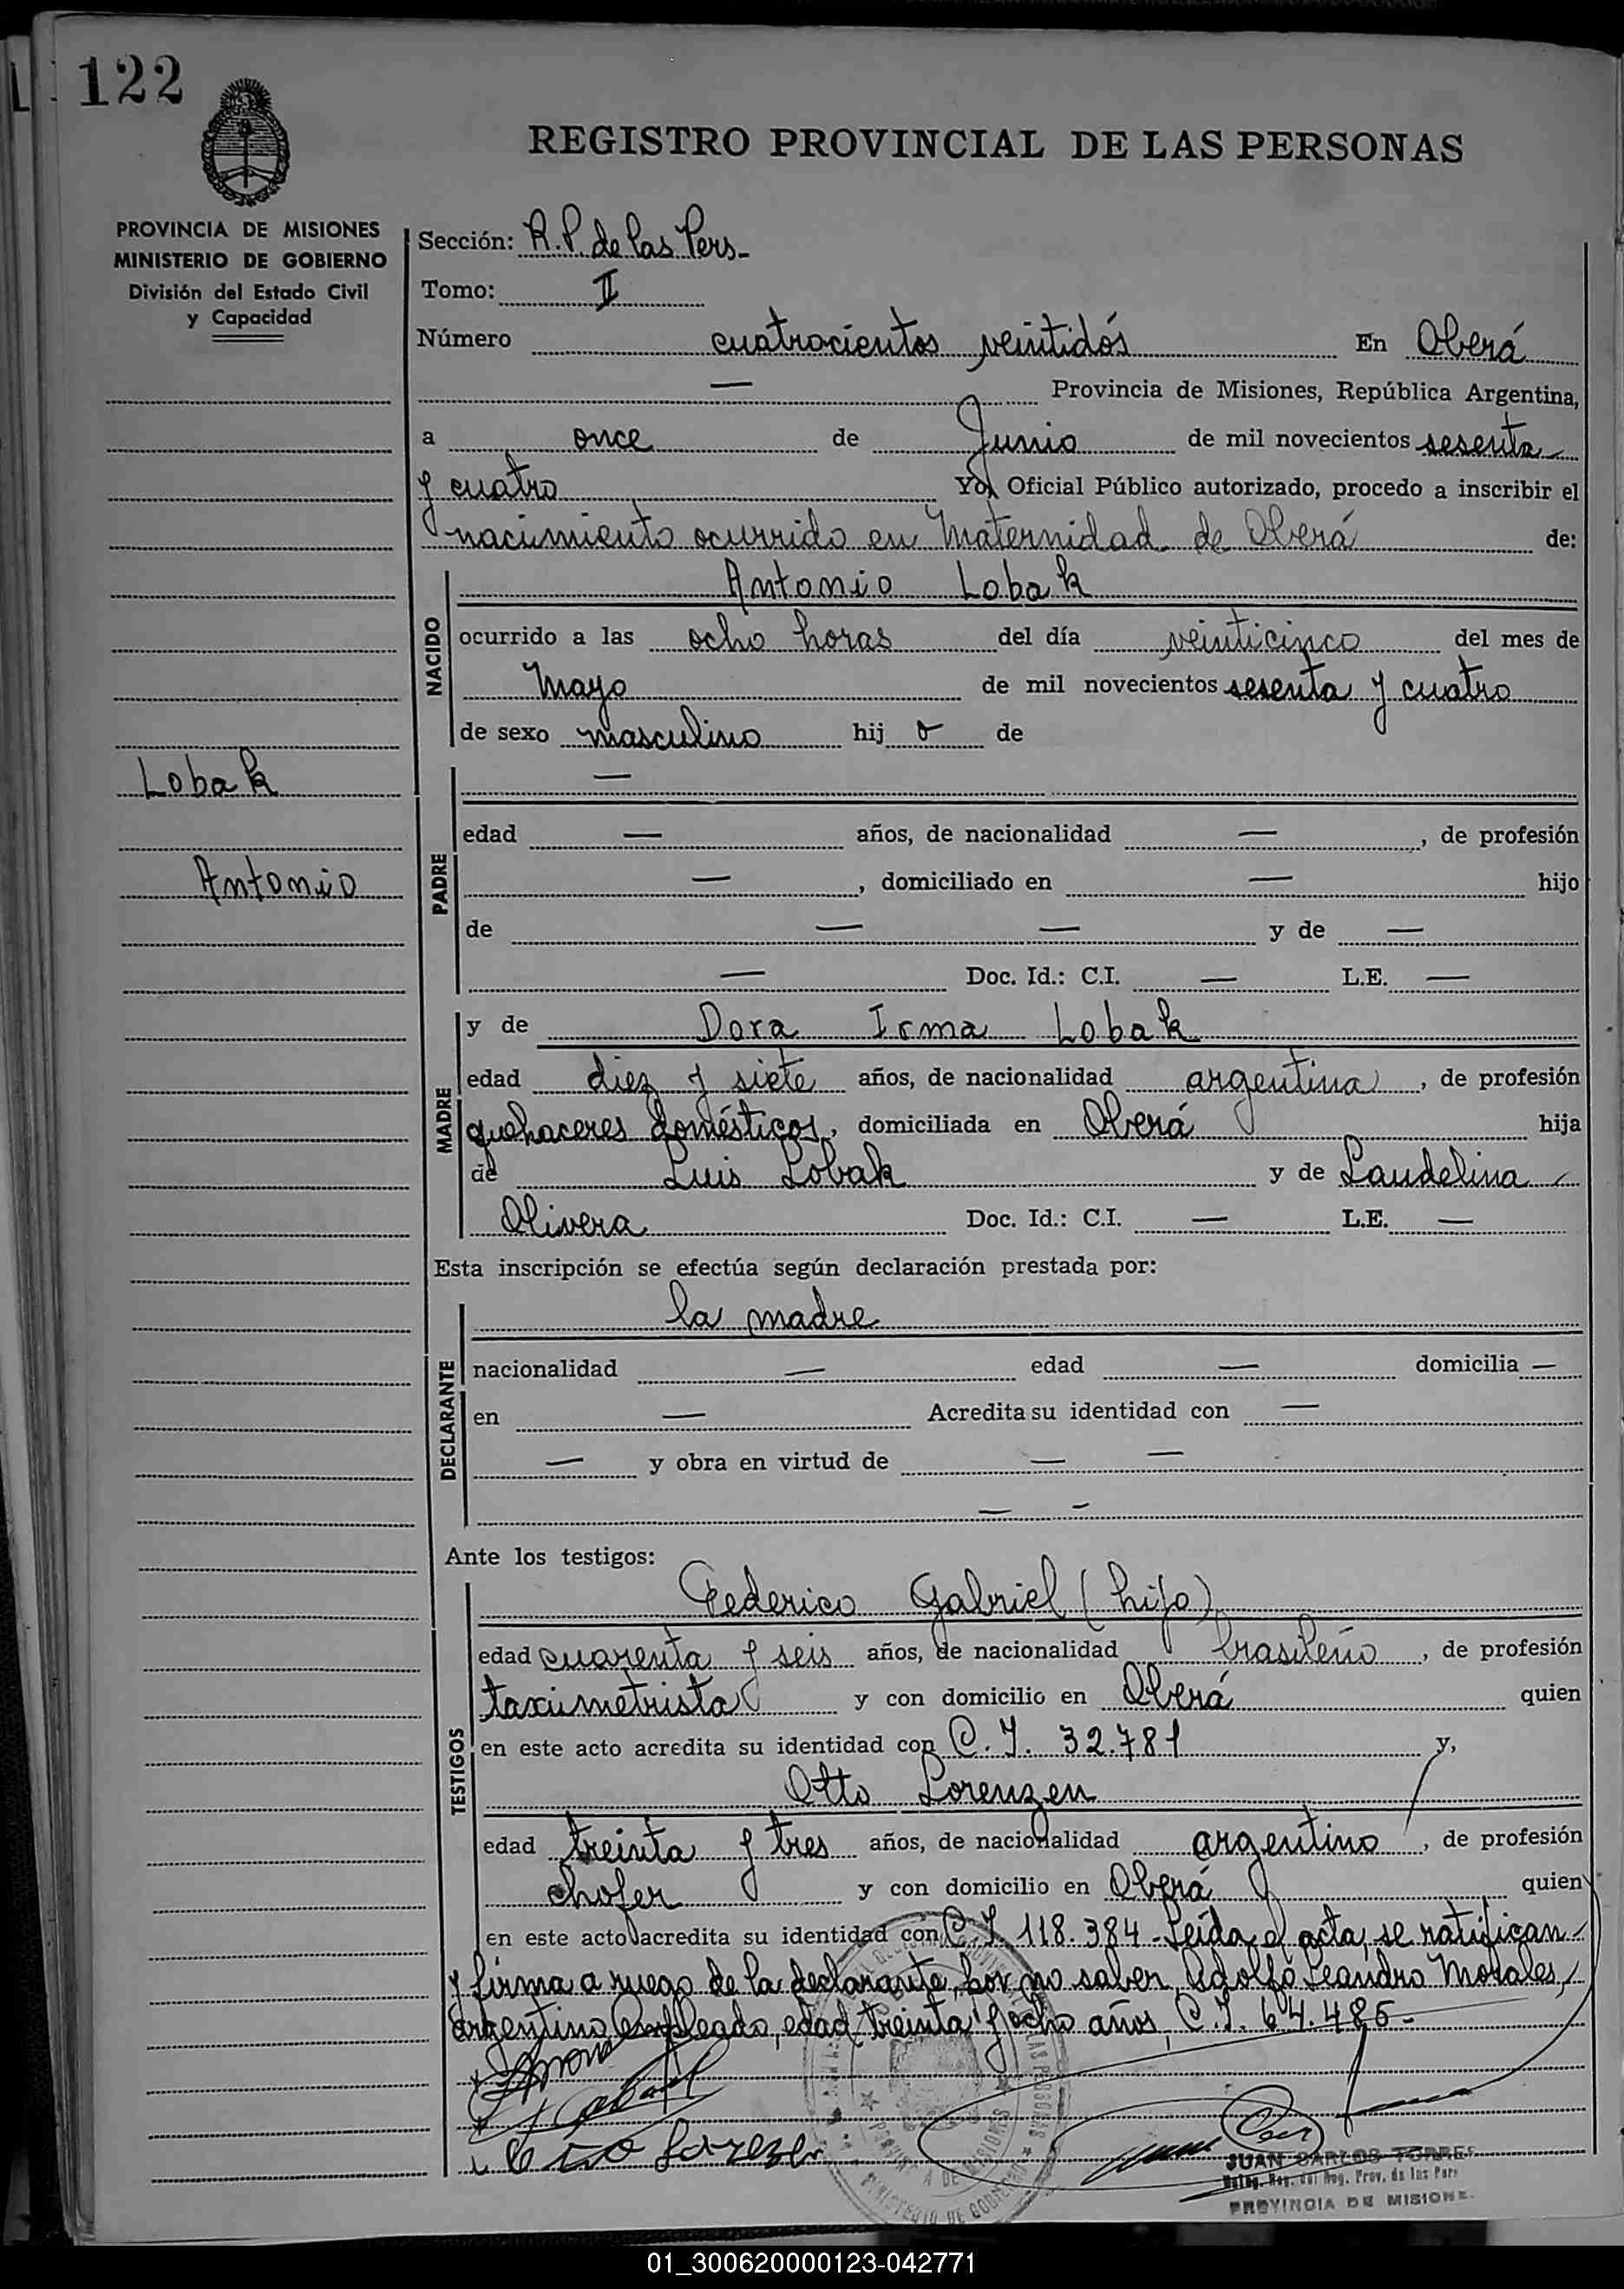 122
REGISTRO PROVINCIAL DE LAS PERSONAS
PROVINCIA DE MISIONES
MINISTERIO DE GOBIERNO
División del Estado Civil
y Capacidad
Sección: R.P. de las Pers-
Tomo: II
Número cuatrocientos veintidós En Oberá
— Provincia de Misiones, República Argentina,
a once de Junio de mil novecientos sesenta
y cuatro Yo, Oficial Público autorizado, procedo a inscribir el
nacimiento ocurrido en Maternidad de Oberá de:
NACIDO
Antonio Lobak
ocurrido a las ocho horas del día veinticinco del mes de
Mayo de mil novecientos sesenta y cuatro
de sexo masculino hij o de
Lobak
Antonio
PADRE
—
edad — años, de nacionalidad —, de profesión
—, domiciliado en — hijo
de — — y de —
— Doc. Id.: C.I. — L.E. —
MADRE
y de Dora Irma Lobak
edad diez y siete años, de nacionalidad argentina, de profesión
quehaceres domésticos, domiciliada en Oberá hija
de Luis Lobak y de Laudelina
Olivera Doc. Id.: C.I. — L.E. —
Esta inscripción se efectúa según declaración prestada por:
DECLARANTE
la madre
nacionalidad — edad — domicilia —
en — Acredita su identidad con —
— y obra en virtud de — —
— -
Ante los testigos:
TESTIGOS
Federico Gabriel (hijo)
edad cuarenta y seis años, de nacionalidad brasileño, de profesión
taximetrista y con domicilio en Oberá quien
en este acto acredita su identidad con C.I. 32.781 y,
Otto Lorenzen
edad treinta y tres años, de nacionalidad argentino, de profesión
chofer y con domicilio en Oberá quien
en este acto acredita su identidad con C.I. 118.384- Leída el acta, se ratifican
y firma a ruego de la declarante, por no saber, Adolfo Leandro Morales,
argentino, empleado, edad treinta y ocho años, C.I. 64.485-
Otto Lorenzen
PROVINCIA DE MISIONES
MINISTERIO DE GOBIERNO
JUAN CARLOS TORRES
Reg. Prov. de las Pers
PROVINCIA DE MISIONE
01_300620000123-042771